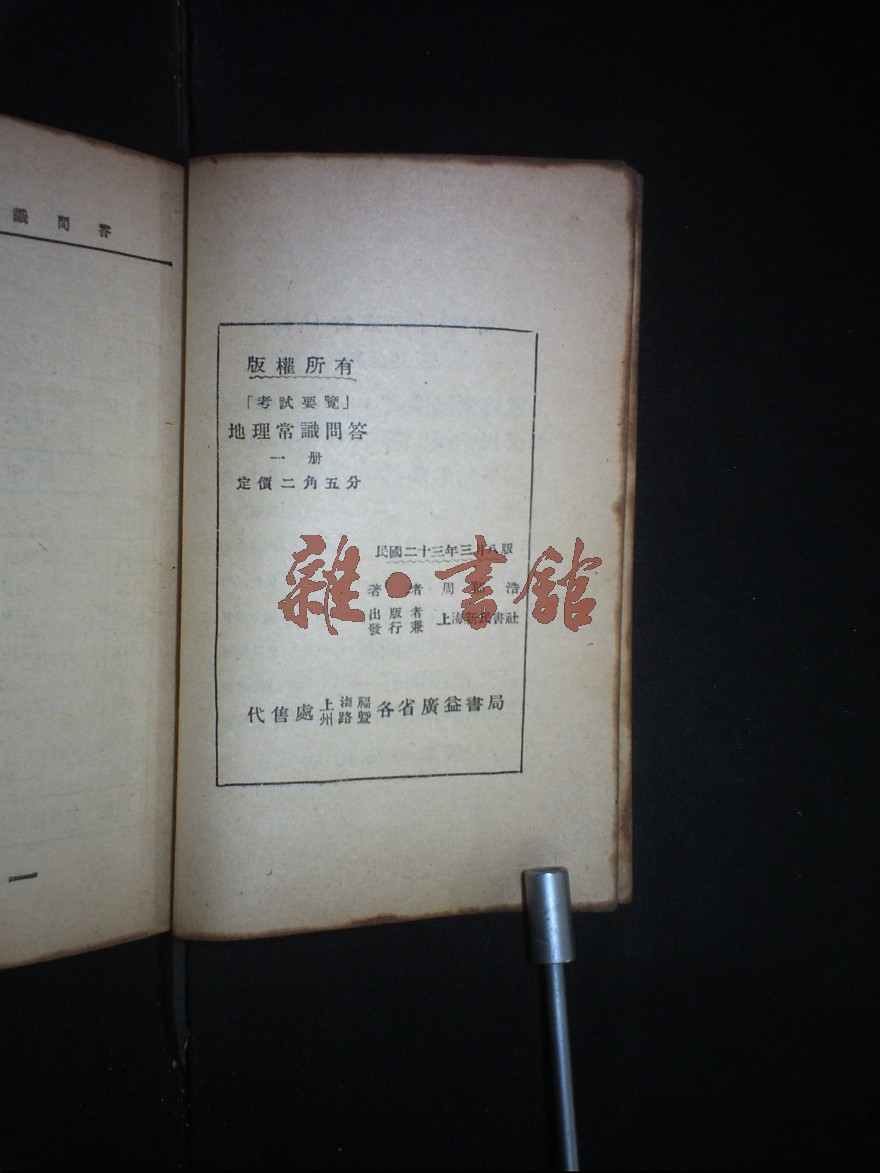 識問答
版權所有
「考試要覽」
地理常識問答
一册
定價二角五分
民國二十三年三月八版
著者 周 浩
出版者
發行兼
上海新民書社
代售處上海福州路暨各省廣益書局
雜·書館
一